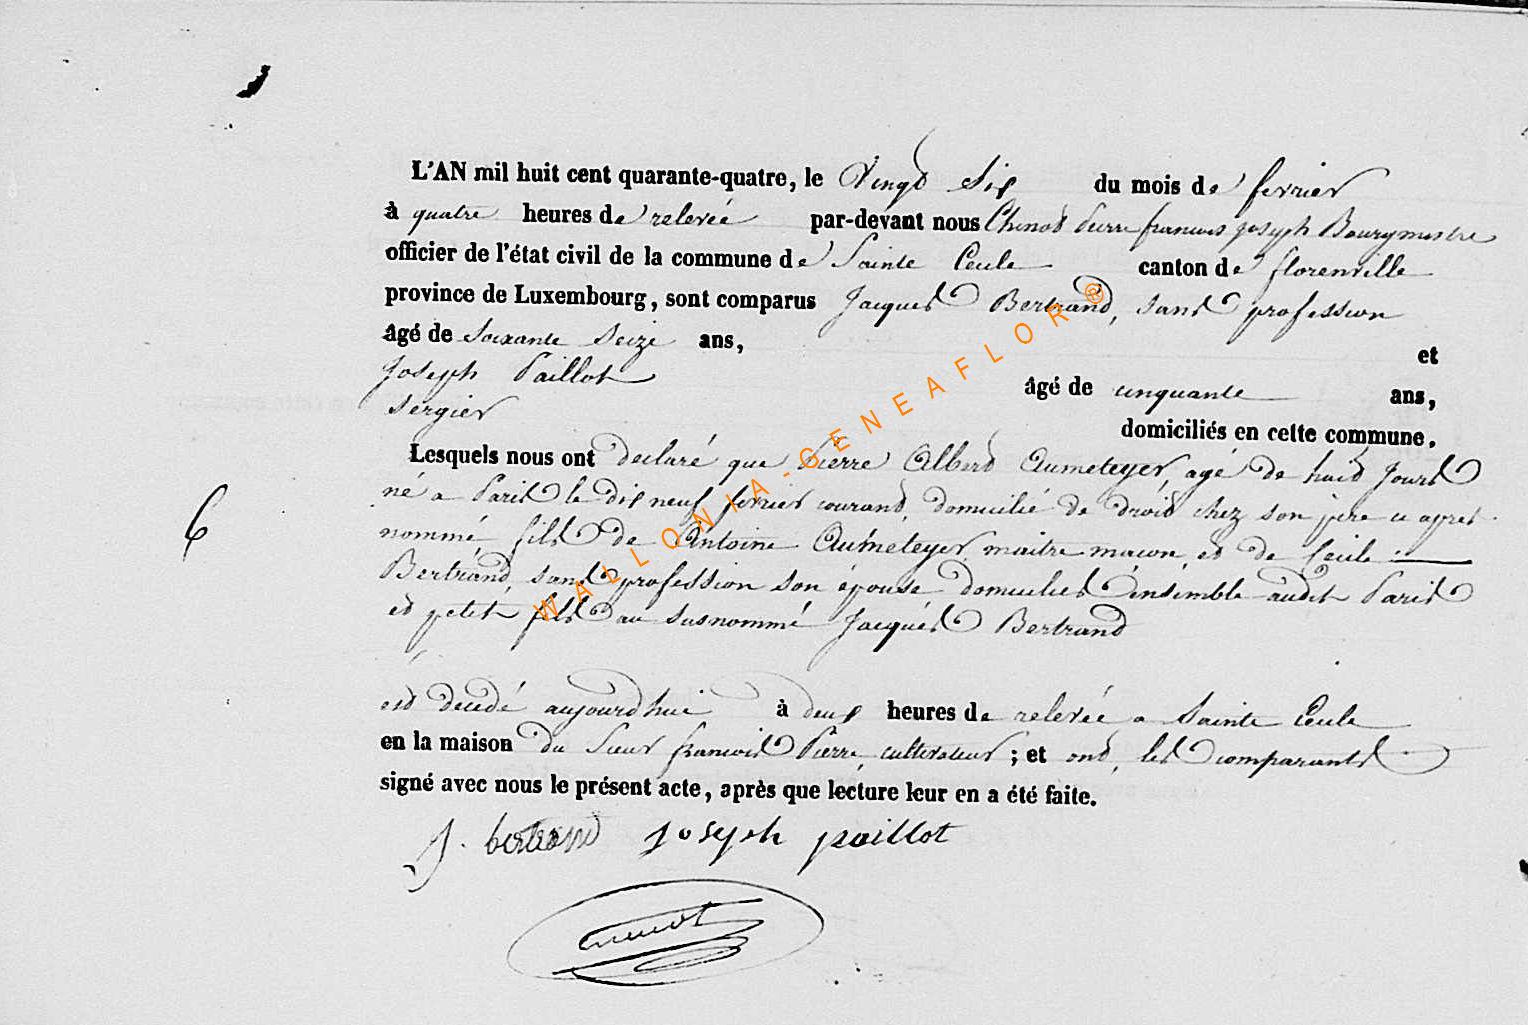 L'AN mil huit cent quarante-quatre, le Vingt Six du mois de fevrier
à quatre heures de relevée par-devant nous Chenot Pierre francois joseph Bourgmestre
officier de l'état civil de la commune de Sainte Cecile canton de florenville
province de Luxembourg, sont comparus Jacques Bertrand, sans profession
âgé de Soixante Seize ans,
et
Joseph Paillot âgé de cinquante ans,
sergier
domiciliés en cette commune.
Lesquels nous ont declaré que Pierre Albert Aumeteyer, agé de huit jours
né a Paris le dix neuf fevrier courant, domicilié de droit chez son père ci apres
6
nommé fils de Antoine Auméteyer, maitre macon, et de Cecile
Bertrand, sans profession son épouse domiciliés énsémble audit Paris
et petit fils au susnommé Jacqués Bertrand
est decedé aujourd'hui à deux heures de relevée a Sainte Cecile
en la maison du Sieur francois Pierre, cultivateur ; et ont, les comparants
signé avec nous le présent acte, après que lecture leur en a été faite.
J. bertrand joseph paillot
Chenot
WALLONIA-GENEAFLOR ®